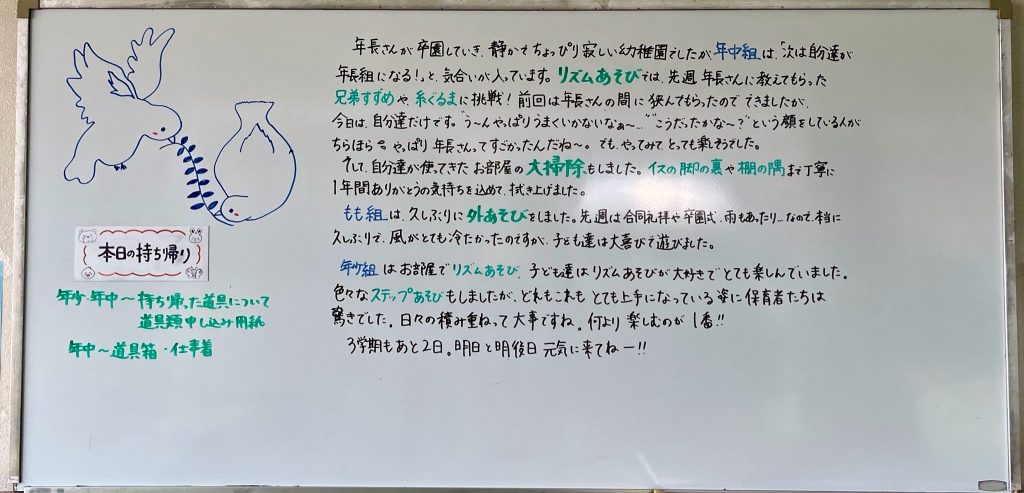 年長さんが卒園していき、静かでちょっぴり寂しい幼稚園でしたが、年中組は、「次は自分達が
年長組になる!」と、気合いが入っています。リズムあそびでは、先週、年長さんに教えてもらった
兄弟すずめや糸ぐるまに挑戦!前回は年長さんの間に挟んでもらったのでできましたが、
今日は、自分達だけです。"う〜ん、やっぱりうまくいかないなぁ〜…""こうだったかな〜?"という顔をしている人が
ちらほら。やっぱり年長さんってすごかったんだね〜。でも、やってみてとっても楽しそうでした。
そして、自分達が使ってきたお部屋の大掃除もしました。イスの脚の裏や棚の隅まで丁寧に
1年間ありがとうの気持ちを込めて、拭き上げました。
もも組は、久しぶりに外あそびをしました。先週は合同礼拝や卒園式、雨もあったり…なので、本当に
久しぶりで、風がとても冷たかったのですが、子ども達は大喜びで遊びました。
年少組はお部屋でリズムあそび。子ども達はリズムあそびが大好きでとても楽しんでいました。
色々なステップあそびもしましたが、どれもこれもとても上手になっている姿に保育者たちは
驚きでした。日々の積み重ねって大事ですね。何より楽しむのが1番!!
3学期もあと2日。明日と明後日元気に来てねー!!
本日の持ち帰り
年少・年中〜持ち帰った道具について
道具類申し込み用紙
年中〜道具箱・仕事着